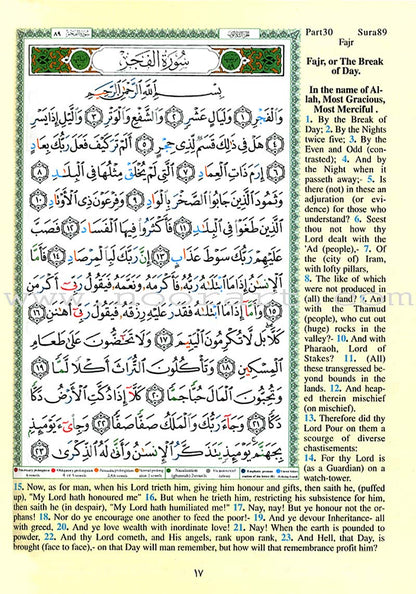 Part30 Sura89
Fajr
Fajr, or The Break
of Day.
In the name of Al-
lah, Most Gracious,
Most Merciful .
1. By the Break of
Day; 2. By the Nights
twice five; 3. By the
Even and Odd (con-
trasted); 4. And by
the Night when it
passeth away;- 5. Is
there (not) in these an
adjuration (or evi-
dence) for those who
understand? 6. Seest
thou not how thy
Lord dealt with the
'Ad (people),- 7. Of
the (city of) Iram,
with lofty pillars,
8. The like of which
were not produced in
(all) the land? 9. And
with the Thamud
(people), who cut out
(huge) rocks in the
valley?- 10. And with
Pharaoh, Lord of
Stakes? 11. (All)
these transgressed be-
yond bounds in the
lands. 12. And heap-
ed therein mischief
(on mischief).
13. Therefore did thy
Lord Pour on them a
scourge of diverse
chastisements:
14. For thy Lord is
(as a Guardian) on a
watch-tower.
٨٩
سُورَةُ الفَجْرِ
بِسْمِ اللَّهِ الرَّحْمَٰنِ الرَّحِيمِ
وَالْفَجْرِ ١ وَلَيَالٍ عَشْرٍ ٢ وَالشَّفْعِ وَالْوَتْرِ ٣ وَاللَّيْلِ إِذَا يَسْرِ
٤ هَلْ فِي ذَٰلِكَ قَسَمٌ لِّذِي حِجْرٍ ٥ أَلَمْ تَرَ كَيْفَ فَعَلَ رَبُّكَ بِعَادٍ
٦ إِرَمَ ذَاتِ الْعِمَادِ ٧ الَّتِي لَمْ يُخْلَقْ مِثْلُهَا فِي الْبِلَادِ ٨
وَثَمُودَ الَّذِينَ جَابُوا الصَّخْرَ بِالْوَادِ ٩ وَفِرْعَوْنَ ذِي الْأَوْتَادِ ١٠
الَّذِينَ طَغَوْا فِي الْبِلَادِ ١١ فَأَكْثَرُوا فِيهَا الْفَسَادَ ١٢ فَصَبَّ
عَلَيْهِمْ رَبُّكَ سَوْطَ عَذَابٍ ١٣ إِنَّ رَبَّكَ لَبِالْمِرْصَادِ ١٤ فَأَمَّا
الْإِنسَانُ إِذَا مَا ابْتَلَاهُ رَبُّهُ فَأَكْرَمَهُ وَنَعَّمَهُ فَيَقُولُ رَبِّي أَكْرَمَنِ
١٥ وَأَمَّا إِذَا مَا ابْتَلَاهُ فَقَدَرَ عَلَيْهِ رِزْقَهُ فَيَقُولُ رَبِّي أَهَانَنِ ١٦
كَلَّا بَل لَّا تُكْرِمُونَ الْيَتِيمَ ١٧ وَلَا تَحَاضُّونَ عَلَىٰ طَعَامِ
الْمِسْكِينِ ١٨ وَتَأْكُلُونَ التُّرَاثَ أَكْلًا لَّمًّا ١٩
وَتُحِبُّونَ الْمَالَ حُبًّا جَمًّا ٢٠ كَلَّا إِذَا دُكَّتِ الْأَرْضُ دَكًّا دَكًّا
٢١ وَجَاءَ رَبُّكَ وَالْمَلَكُ صَفًّا صَفًّا ٢٢ وَجِيءَ يَوْمَئِذٍ
بِجَهَنَّمَ يَوْمَئِذٍ يَتَذَكَّرُ الْإِنسَانُ وَأَنَّىٰ لَهُ الذِّكْرَىٰ ٢٣
15. Now, as for man, when his Lord trieth him, giving him honour and gifts, then saith he, (puffed
up), "My Lord hath honoured me" 16. But when he trieth him, restricting his subsistence for him,
then saith he (in despair), "My Lord hath humiliated me!" 17. Nay, nay! But ye honour not the or-
phans! 18. Nor do ye encourage one another to feed the poor!- 19. And ye devour Inheritance- all
with greed, 20. And ye love wealth with inordinate love! 21. Nay! When the earth is pounded to
powder, 22. And thy Lord cometh, and His angels, rank upon rank, 23. And Hell, that Day, is
brought (face to face),- on that Day will man remember, but how will that remembrance profit him?
١٧